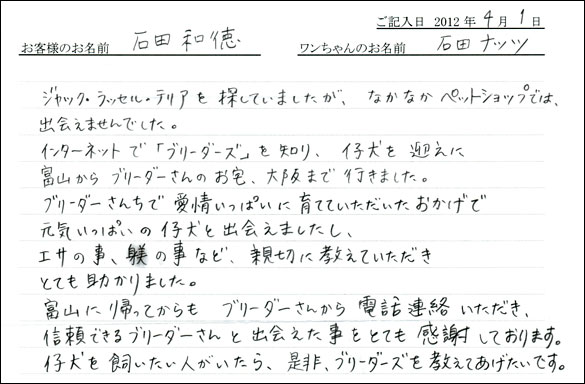 ご記入日 2012年4月1日
お客様のお名前 石田 和徳 ワンちゃんのお名前 石田 ナッツ
ジャック・ラッセル・テリアを探していましたが、なかなかペットショップでは、
出会えませんでした。
インターネットで「ブリーダーズ」を知り、仔犬を迎えに
富山からブリーダーさんのお宅、大阪まで行きました。
ブリーダーさんちで愛情いっぱいに育てていただいたおかげで
元気いっぱいの仔犬と出会えましたし、
エサの事、躾の事など、親切に教えていただき
とても助かりました。
富山に帰ってからもブリーダーさんから電話連絡いただき、
信頼できるブリーダーさんと出会えた事をとても感謝しております。
仔犬を飼いたい人がいたら、是非、ブリーダーズを教えてあげたいです。